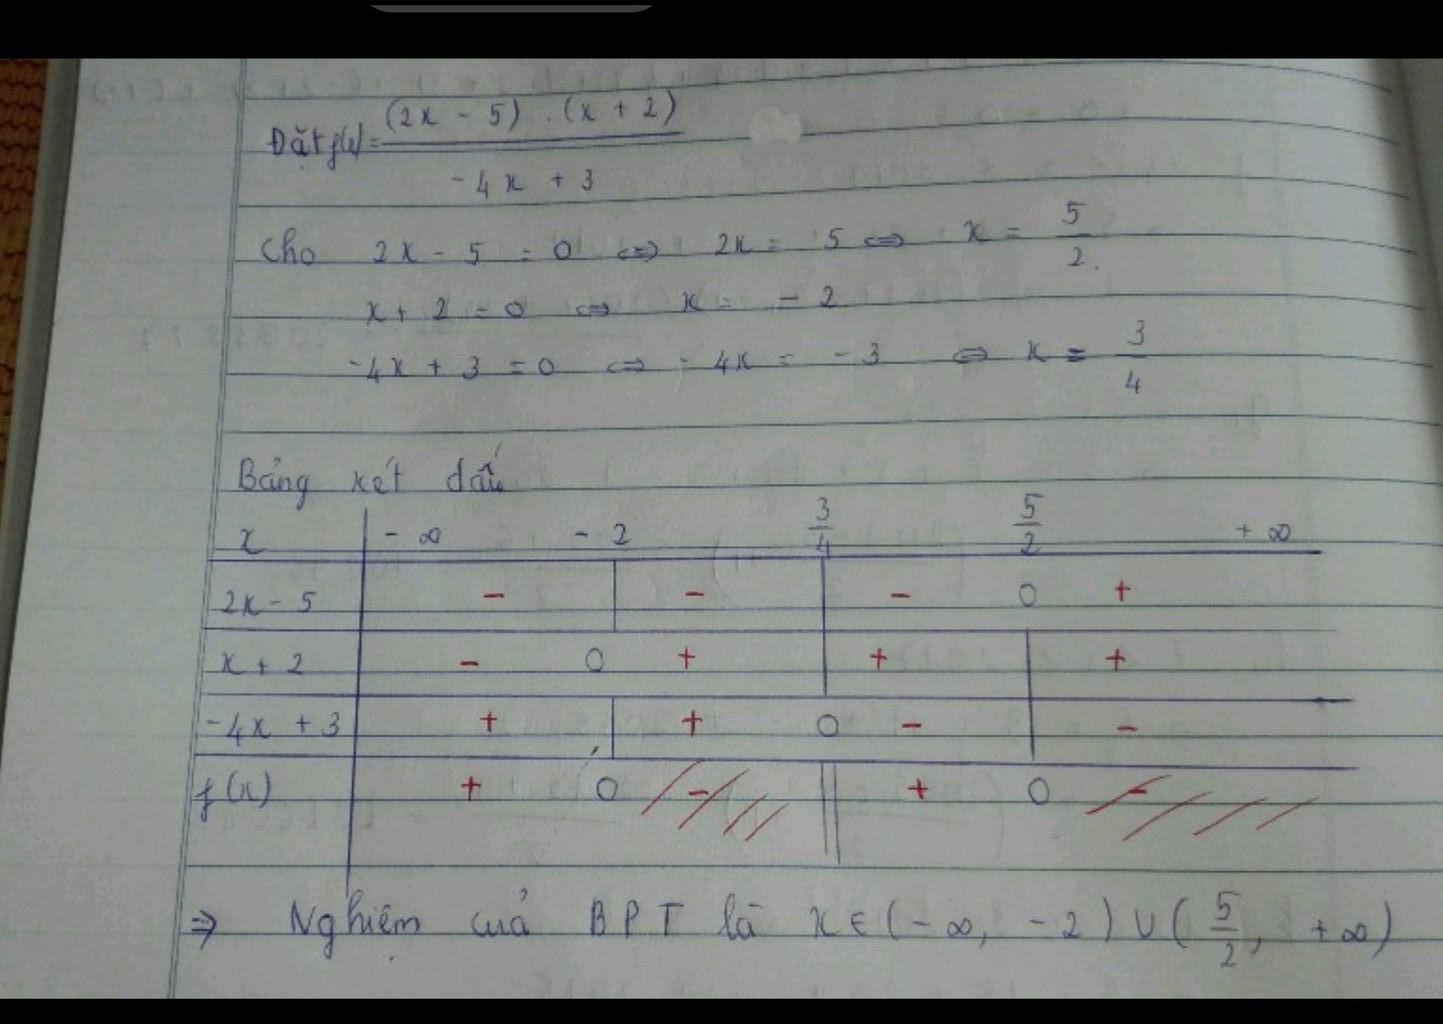 Đặt f(x) = (2x - 5) . (x + 2) / -4x + 3
Cho 2x - 5 = 0 ⇔ 2x = 5 ⇔ x = 5/2.
x + 2 = 0 ⇔ x = - 2
-4x + 3 = 0 ⇔ - 4x = - 3 ⇔ x = 3/4
Bảng xét dấu
x - ∞ - 2 3/4 5/2 + ∞
2x - 5 - - - 0 +
x + 2 - 0 + + +
-4x + 3 + + 0 - -
f(x) + 0 - || + 0 -
⇒ Nghiệm cuả BPT là x ∈ (- ∞, - 2) ∪ (5/2, + ∞)